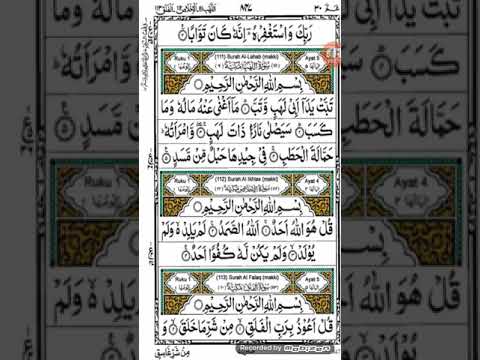 عم ٣٠
رَبِّكَ وَاسْتَغْفِرْهُ ؕ اِنَّهٗ كَانَ تَوَّابًا
Ruku 1 (111) Surah Al-Lahab (makki) Ayat 5
بِسْمِ اللّٰهِ الرَّحْمٰنِ الرَّحِيْمِ
تَبَّتْ يَدَاۤ اَبِىْ لَهَبٍ وَّتَبَّ مَاۤ اَغْنٰى عَنْهُ مَالُهٗ وَمَا
كَسَبَ سَيَصْلٰى نَارًا ذَاتَ لَهَبٍ وَّامْرَاَتُهٗ
حَمَّالَةَ الْحَطَبِ فِىْ جِيْدِهَا حَبْلٌ مِّنْ مَّسَدٍ
Ruku 1 (112) Surah Al Ikhlas (makki) Ayat 4
بِسْمِ اللّٰهِ الرَّحْمٰنِ الرَّحِيْمِ
قُلْ هُوَ اللّٰهُ اَحَدٌ اَللّٰهُ الصَّمَدُ لَمْ يَلِدْ ۙ وَلَمْ
يُوْلَدْ وَلَمْ يَكُنْ لَّهٗ كُفُوًا اَحَدٌ
Ruku 1 (113) Surah Al Falaq (makki) Ayat 5
بِسْمِ اللّٰهِ الرَّحْمٰنِ الرَّحِيْمِ
قُلْ اَعُوْذُ بِرَبِّ الْفَلَقِ مِنْ شَرِّ مَا خَلَقَ وَ
مِنْ شَرِّ غَاسِقٍ
Recorded by